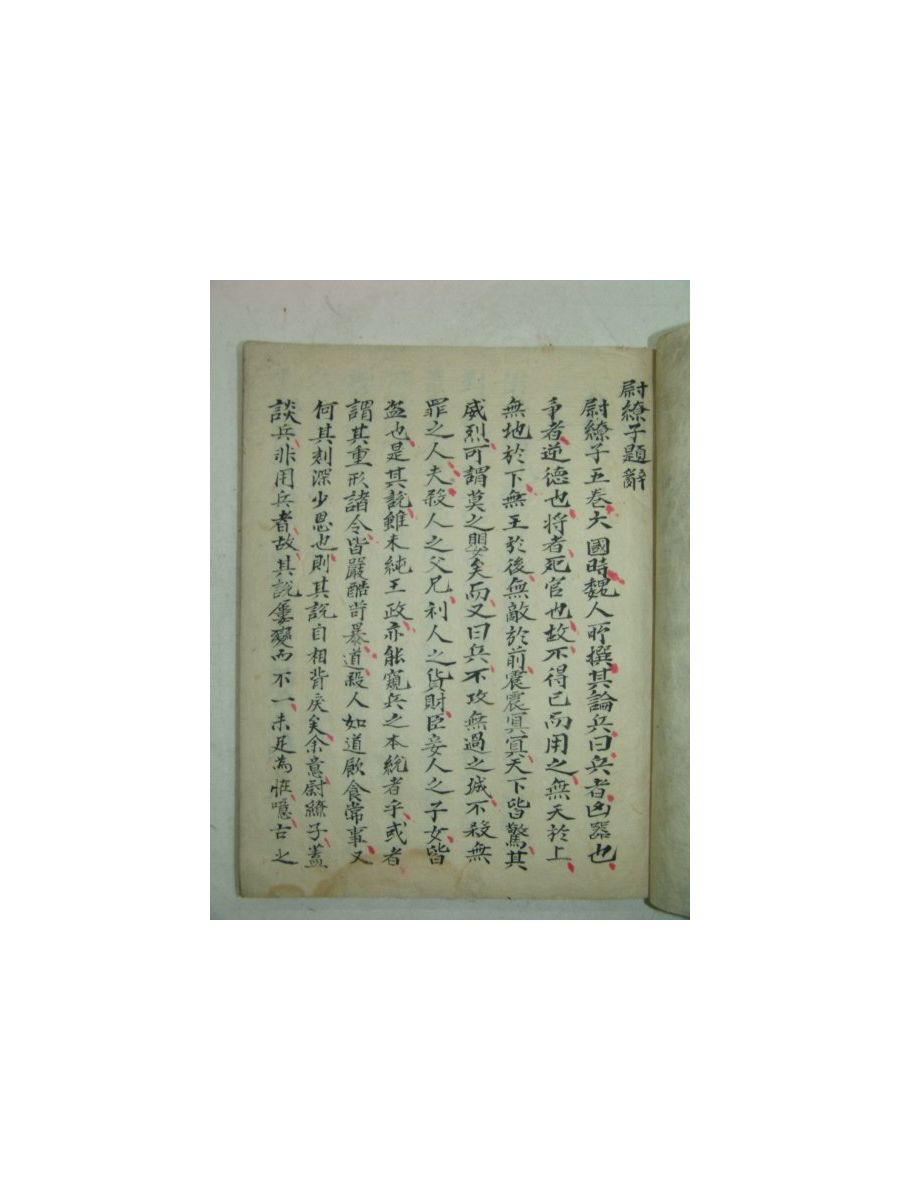 尉繚子題辭
尉繚子五卷六國時魏人所撰其論兵曰兵者凶器也
爭者逆德也將者死官也故不得已而用之無天於上
無地於下無王於後無敵於前震震冥冥天下皆驚其
威烈可謂莫之嬰矣而又曰兵不攻無過之城不殺無
罪之人夫殺人之父兄利人之貨財臣妾人之子女皆
盜也是其說雖未純王政亦能窺兵之本統者乎或者
謂其重形諸令皆嚴酷苛暴道殺人如道飮食常事又
何其刻深少恩也則其說自相背戾矣余意尉繚子蓋
談兵非用兵者故其說屢變而不一未足為恠噫古之